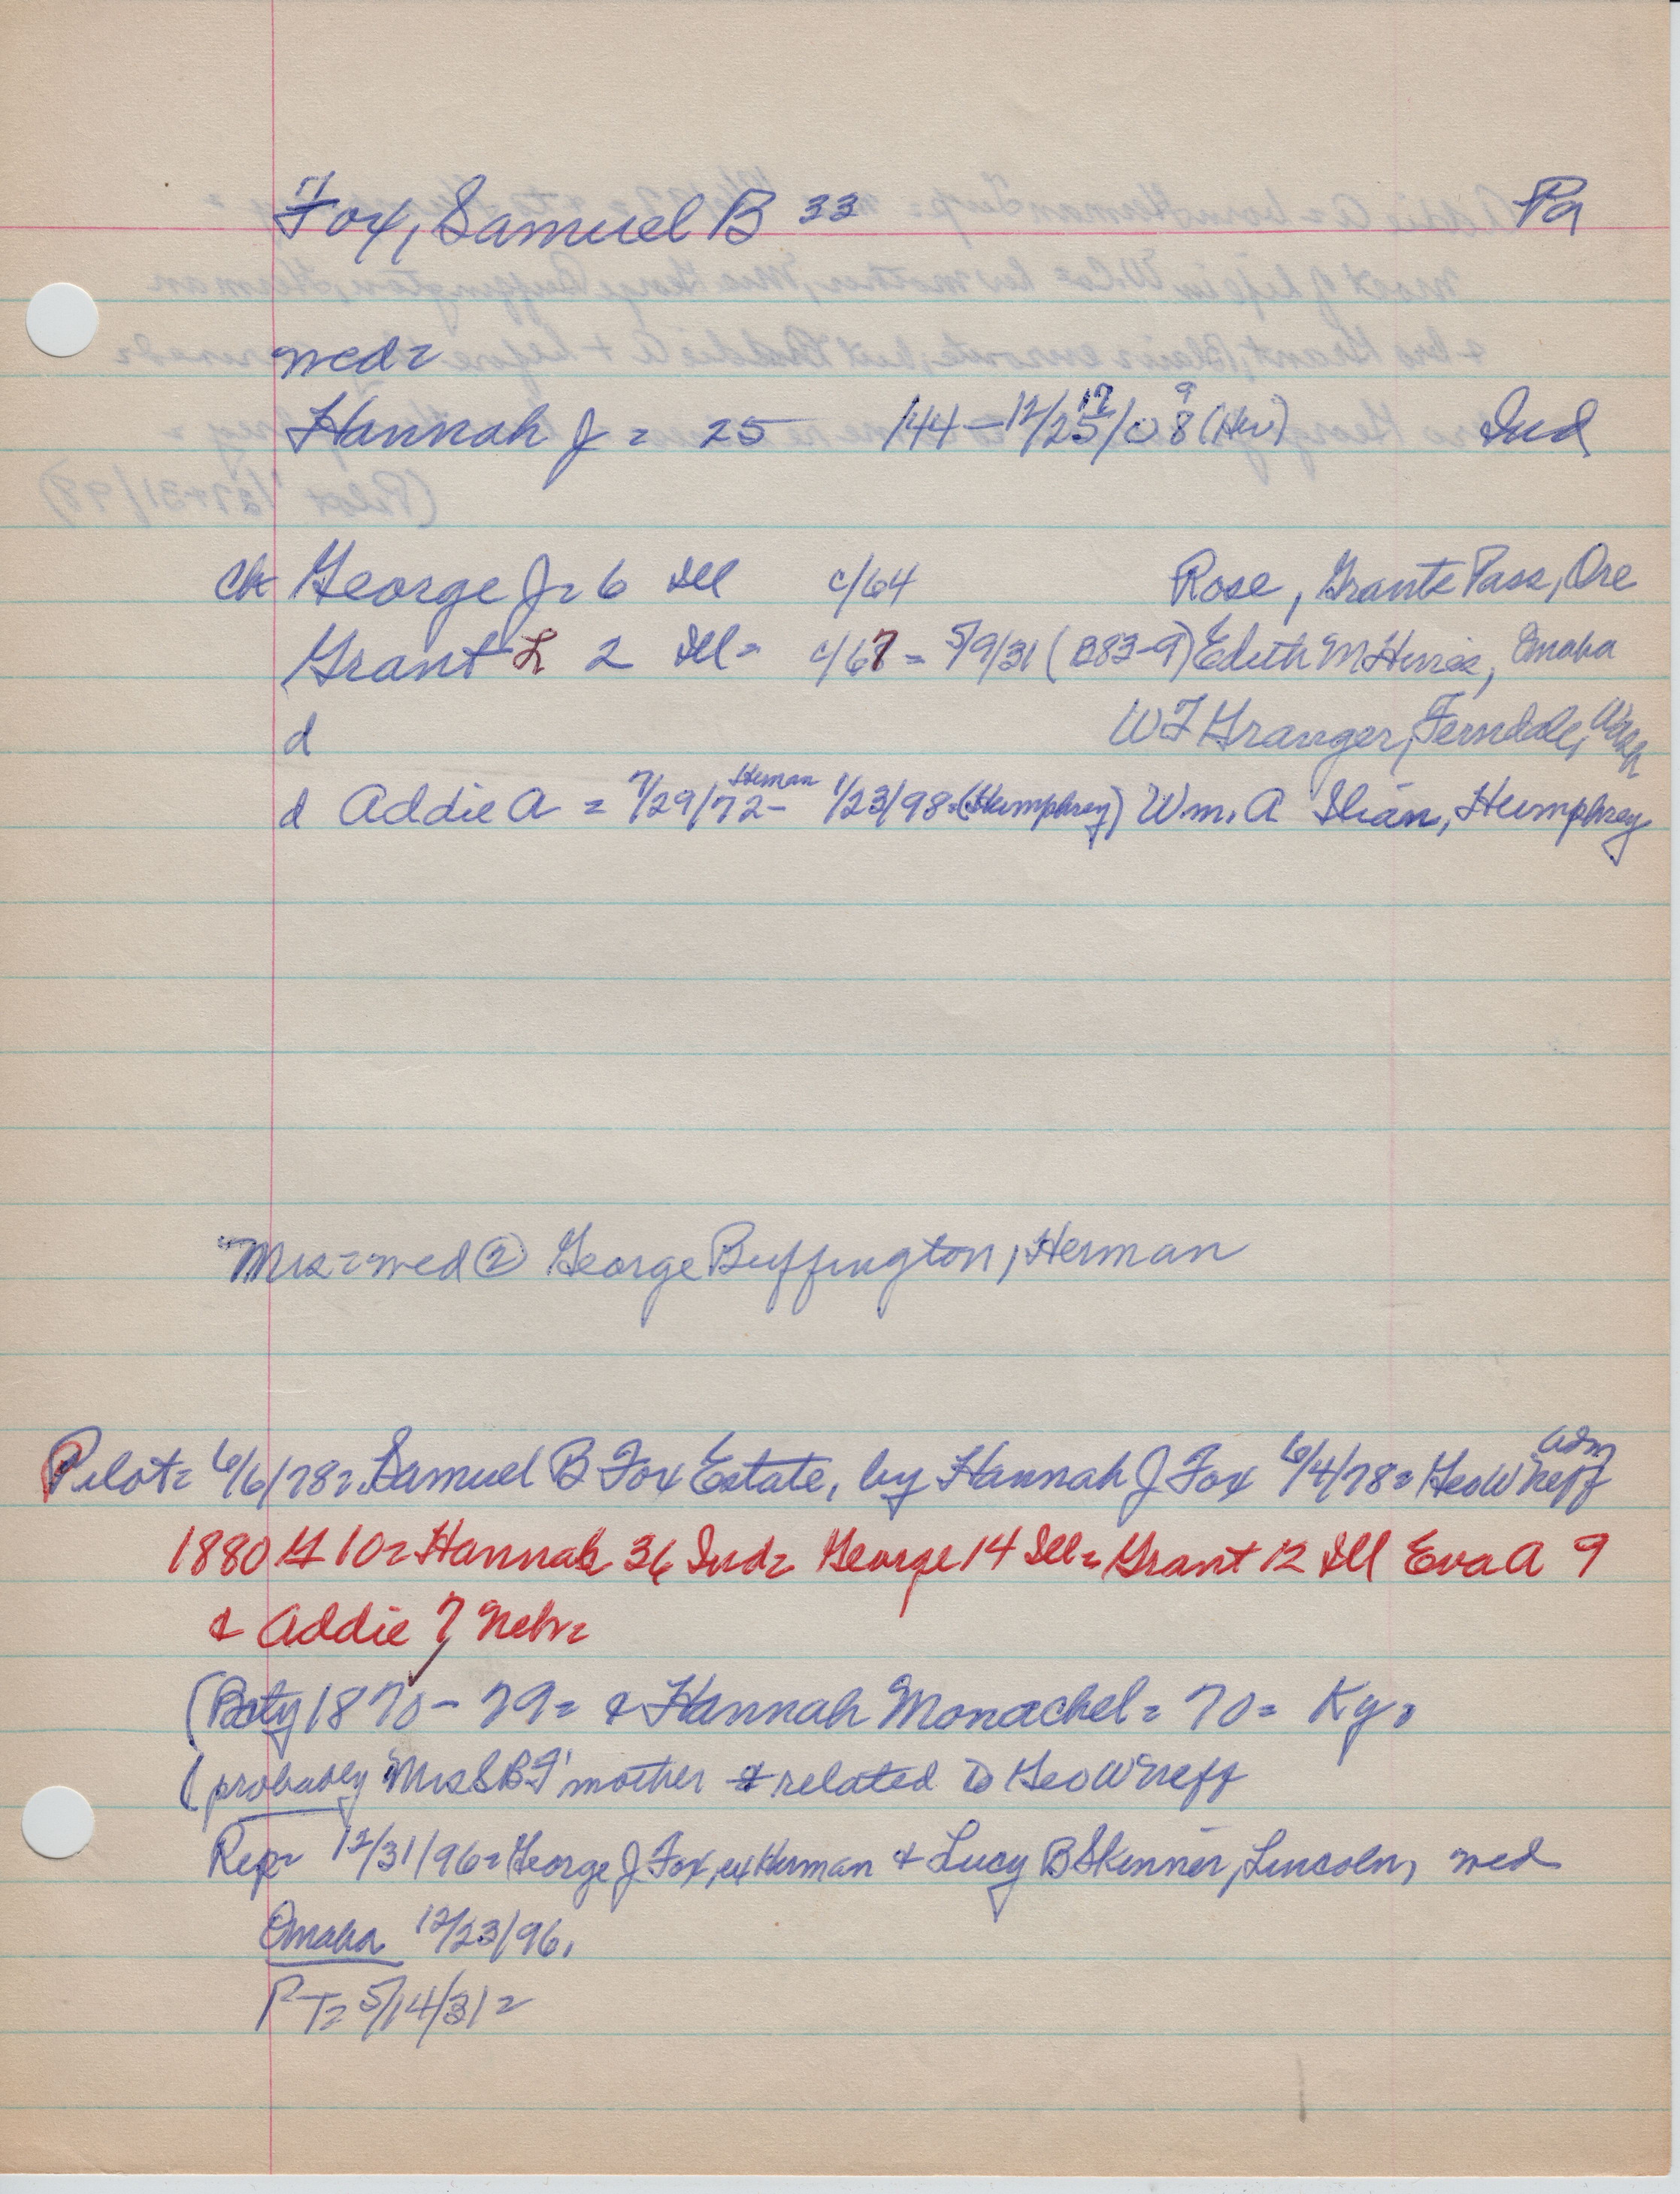 Fox, Samuel B 33 Pa
med=
Hannah J = 25 /44 - 12/25/08 (Her) Ind
17 9
ch George J = 6 Ill c/64 Rose, Grants Pass, Ore
Grant L 2 Ill = c/67 = 5/9/31 (B83-9) Edith M Hines, Omaha
d W F Granger, Ferndale, Wash
d Addie A = 7/29/72 - Herman 1/23/98 = (Humphrey) Wm. A Humphrey
Mrs = med ② George Buffington, Herman
Pilot = 6/6/78 = Samuel B Fox Estate, by Hannah J Fox 6/4/78 = Geo W Neff adm
1880 G 10 = Hannah 36 Ind = George 14 Ill = Grant 12 Ill Eva A 9
& Addie 7 Nebr =
(Bcty 1870 - 79 = & Hannah Monachel = 70 = Ky =
(probably Mrs SBF' mother & related to Geo W Neff
Rep = 12/31/96 = George J Fox, ex Herman & Lucy B Skinner, Lincoln, med
Omaha 12/23/96.
PT = 5/14/31 =